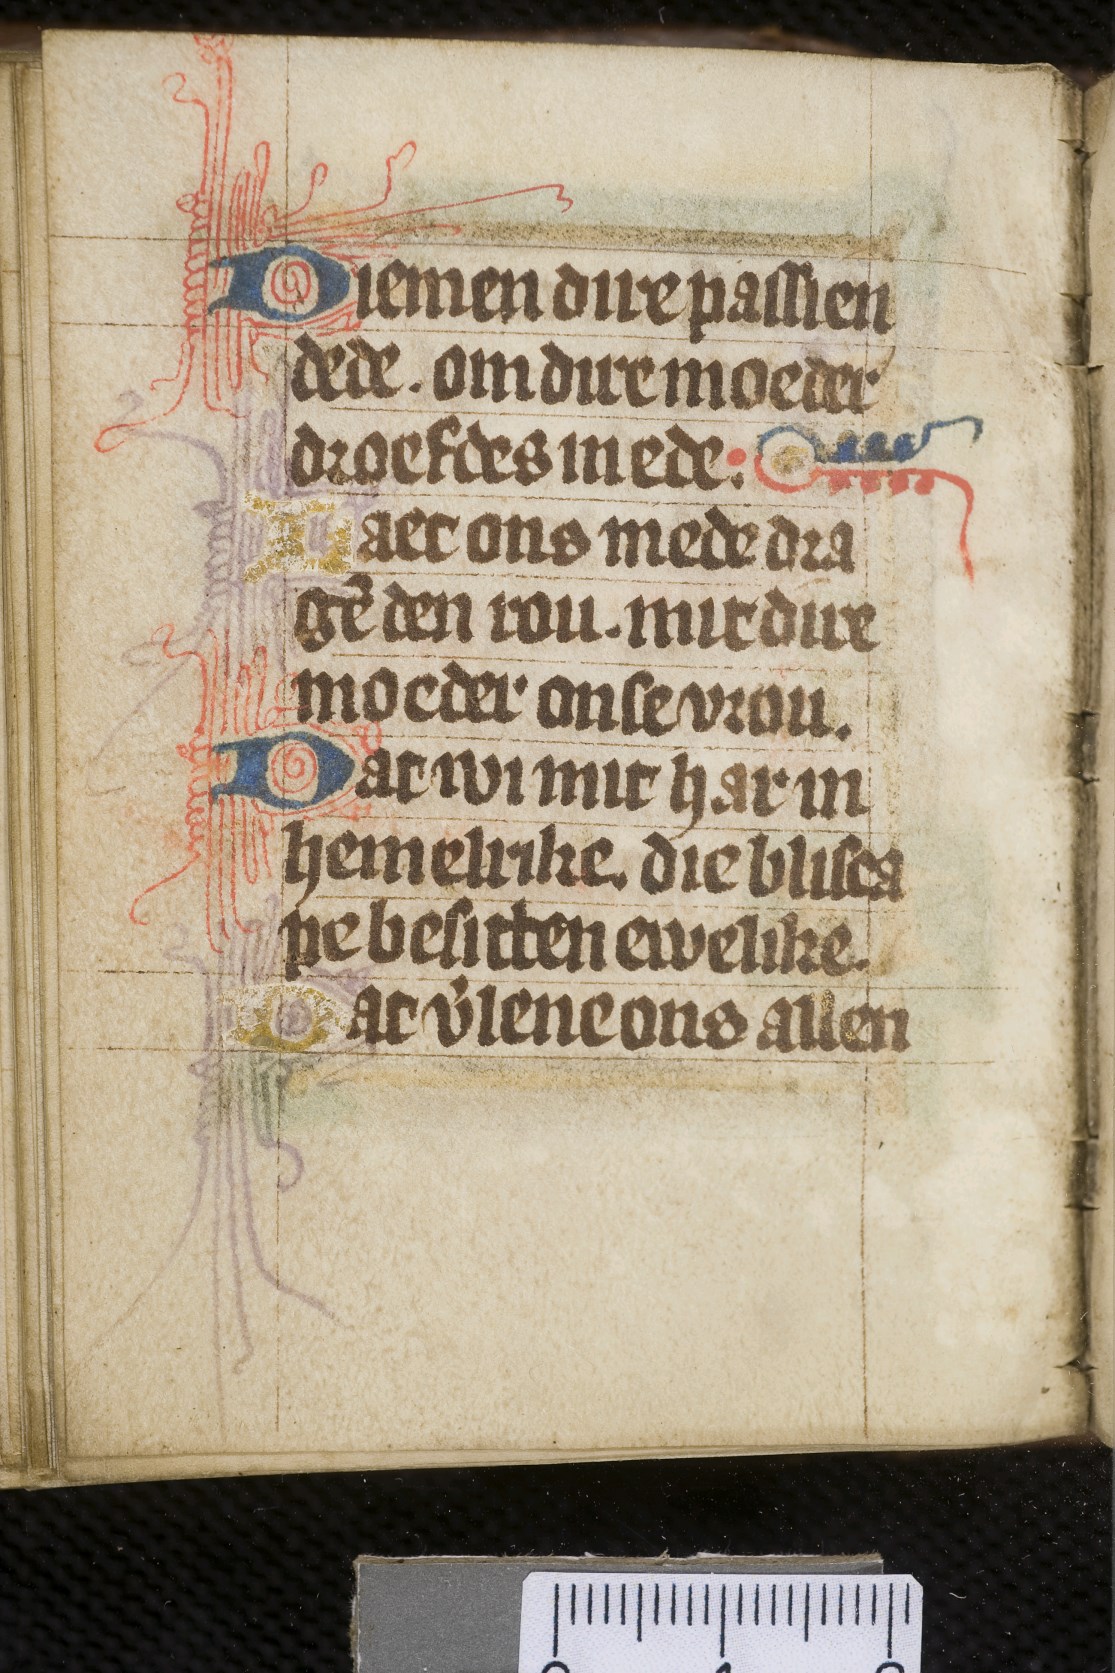 Diemen dure passien
dede. om dure moeder
droefdes mede:
Laet ons mede dra
gē den rou. mit dure
moeder onse vrou.
Dat wi mit har in
hemelrike. die blisca
pe besitten ewelike.
Dat v̓lene ons allen